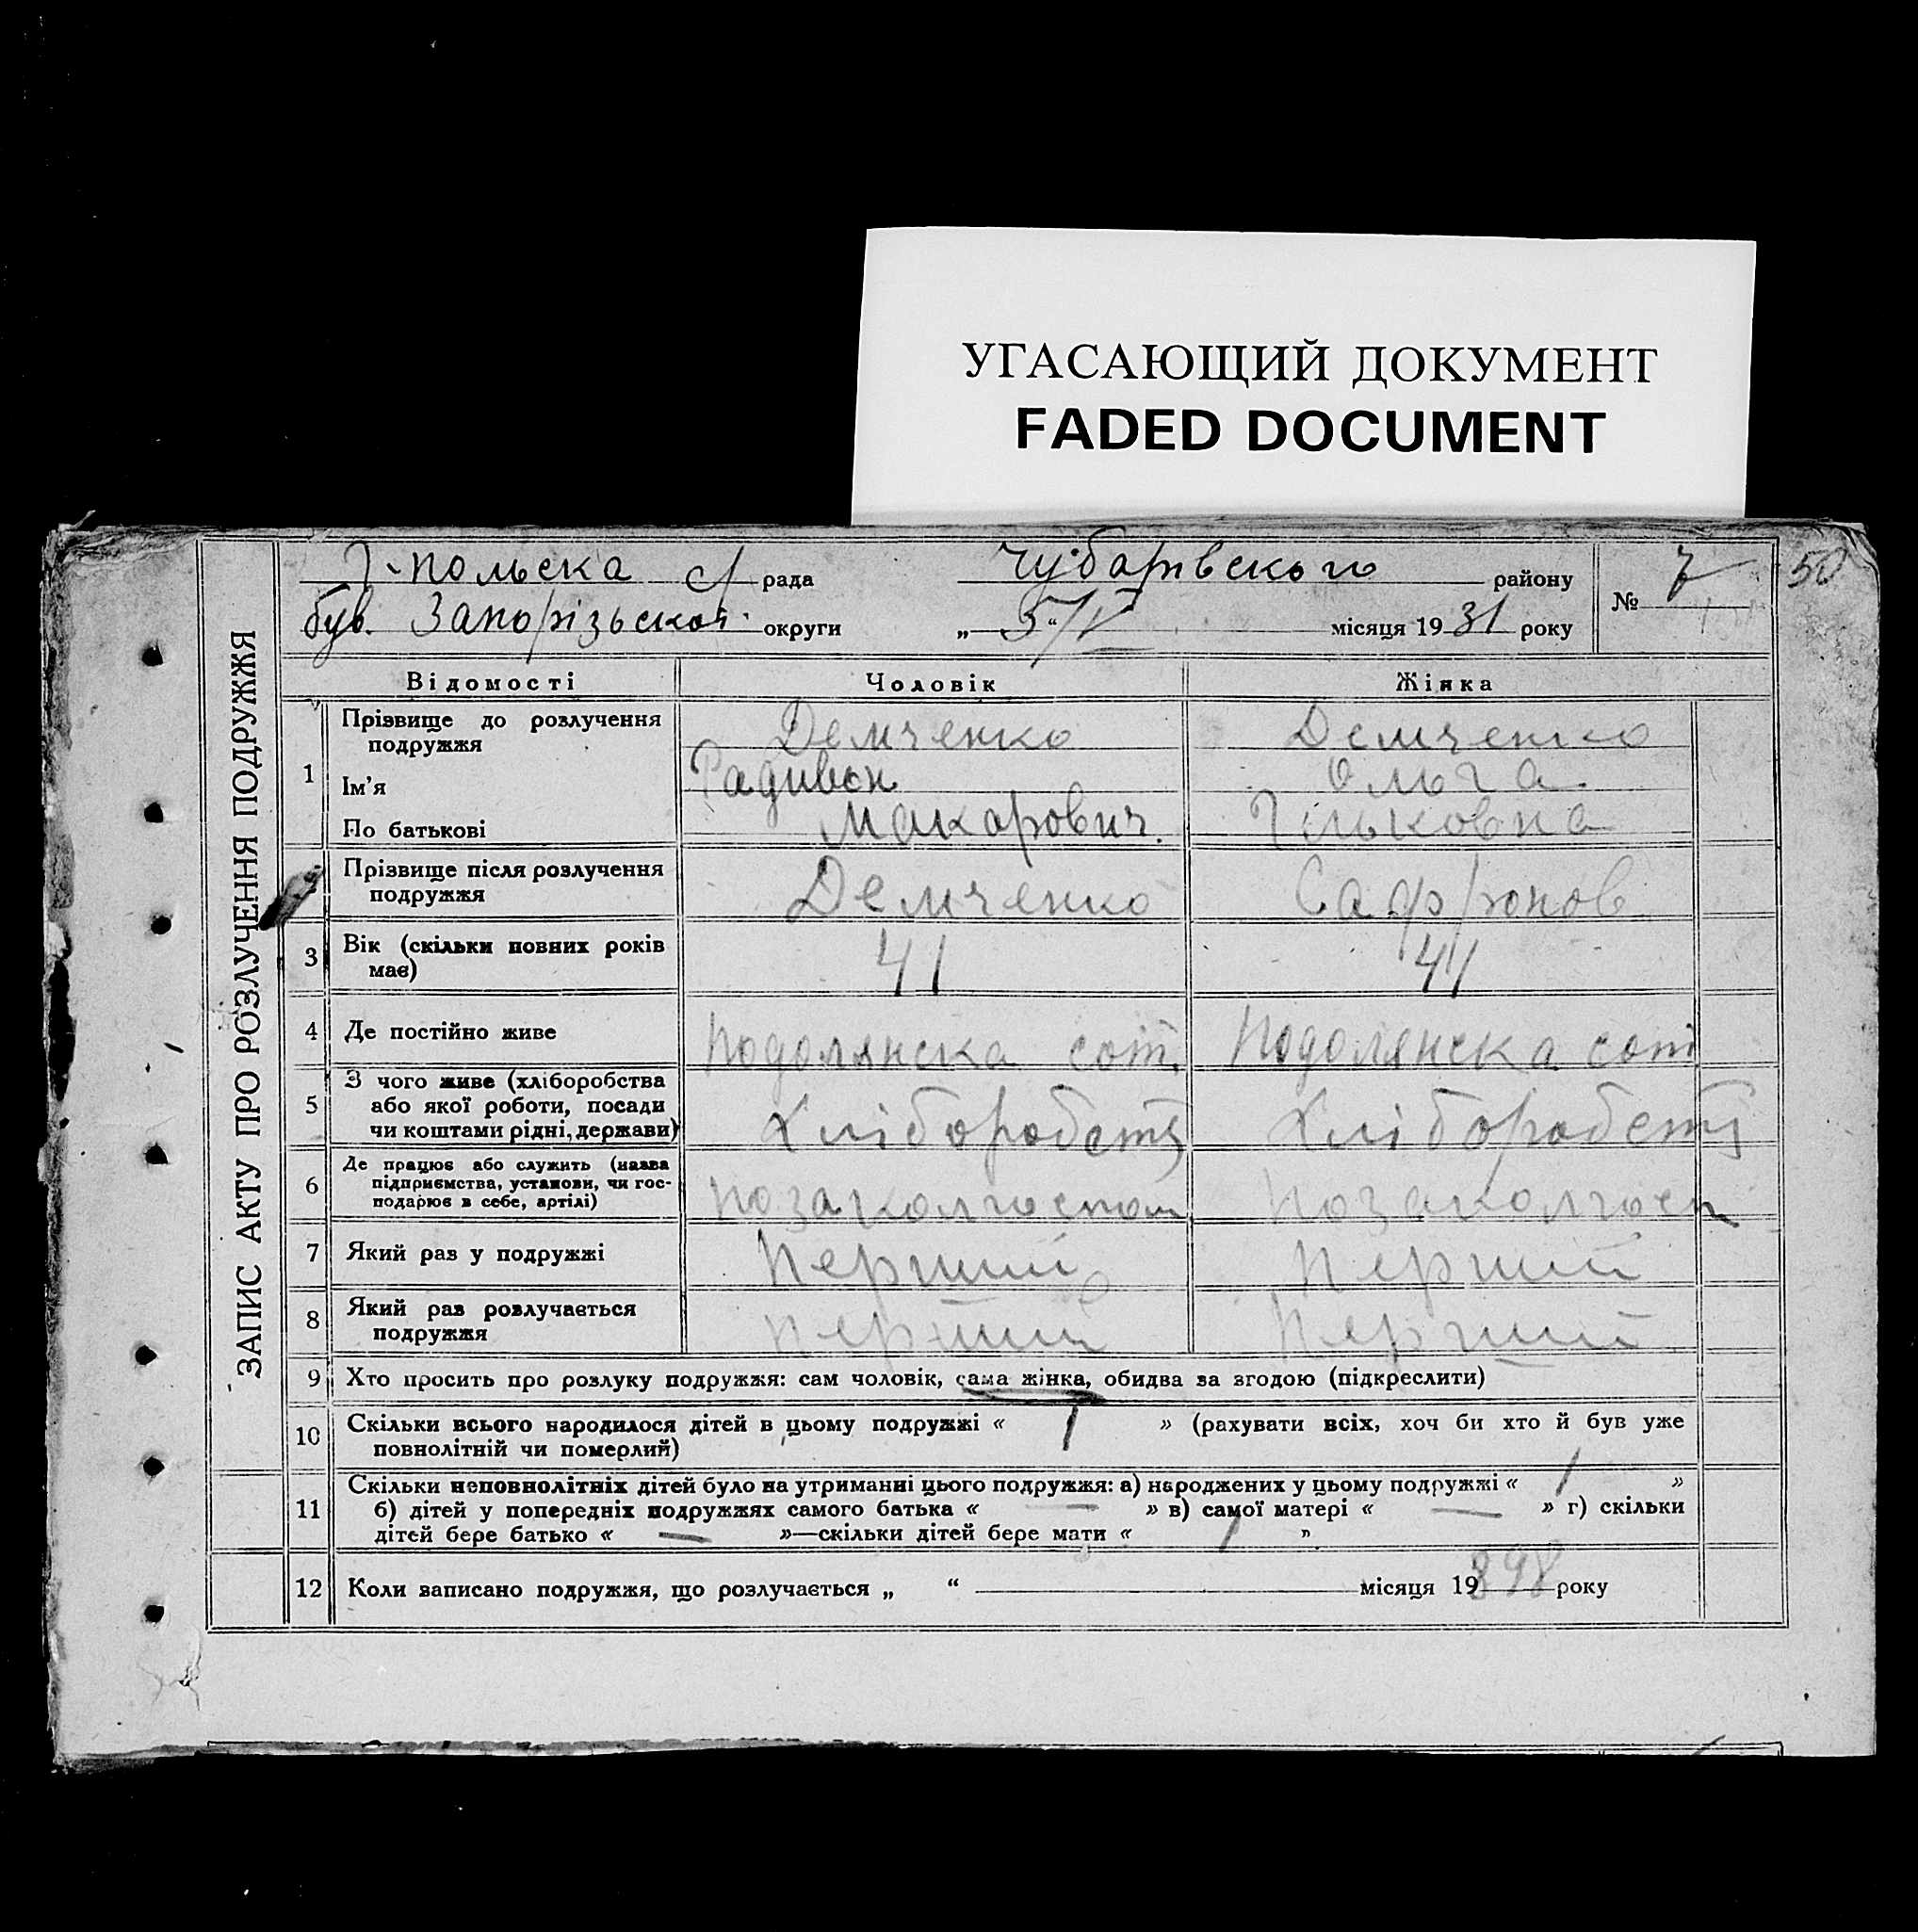 УГАСАЮЩИЙ ДОКУМЕНТ
FADED DOCUMENT
50
ЗАПИС АКТУ ПРО РОЗЛУЧЕННЯ ПОДРУЖЖЯ
Г-польска с/ рада Чубарівского району № 7
був. Запорізьской округи „ 5/V “ місяця 1931 року
Відомості Чоловік Жінка
1 Прізвище до розлучення подружжя Демченко Демченко
Ім'я Радивон Ольга
По батькові Макарович. Гільковна
Прізвище після розлучення подружжя Демченко Сафронов
3 Вік (скільки повних років має) 41 41
4 Де постійно живе Подолянска сот. Подолянска сот
5 З чого живе (хліборобства або якої роботи, посади чи коштами рідні, держави) Хліборобств Хліборобств
6 Де працює або служить (назва підприємства, установи, чи господарює в себе, артілі) позаколгоспом позаколгосп
7 Який раз у подружжі Перший Перший
8 Який раз розлучається подружжя перший Перший
9 Хто просить про розлуку подружжя: сам чоловік, сама жінка, обидва за згодою (підкреслити)
10 Скільки всього народилося дітей в цьому подружжі « 1 » (рахувати всіх, хоч би хто й був уже
повнолітній чи померлий)
11 Скільки неповнолітніх дітей було на утриманні цього подружжя: а) народжених у цьому подружжі « 1 »
б) дітей у попередніх подружжях самого батька « — » в) самої матері « — » г) скільки
дітей бере батько « — »—скільки дітей бере мати « 1 »
12 Коли записано подружжя, що розлучається „ “ місяця 19 898 року